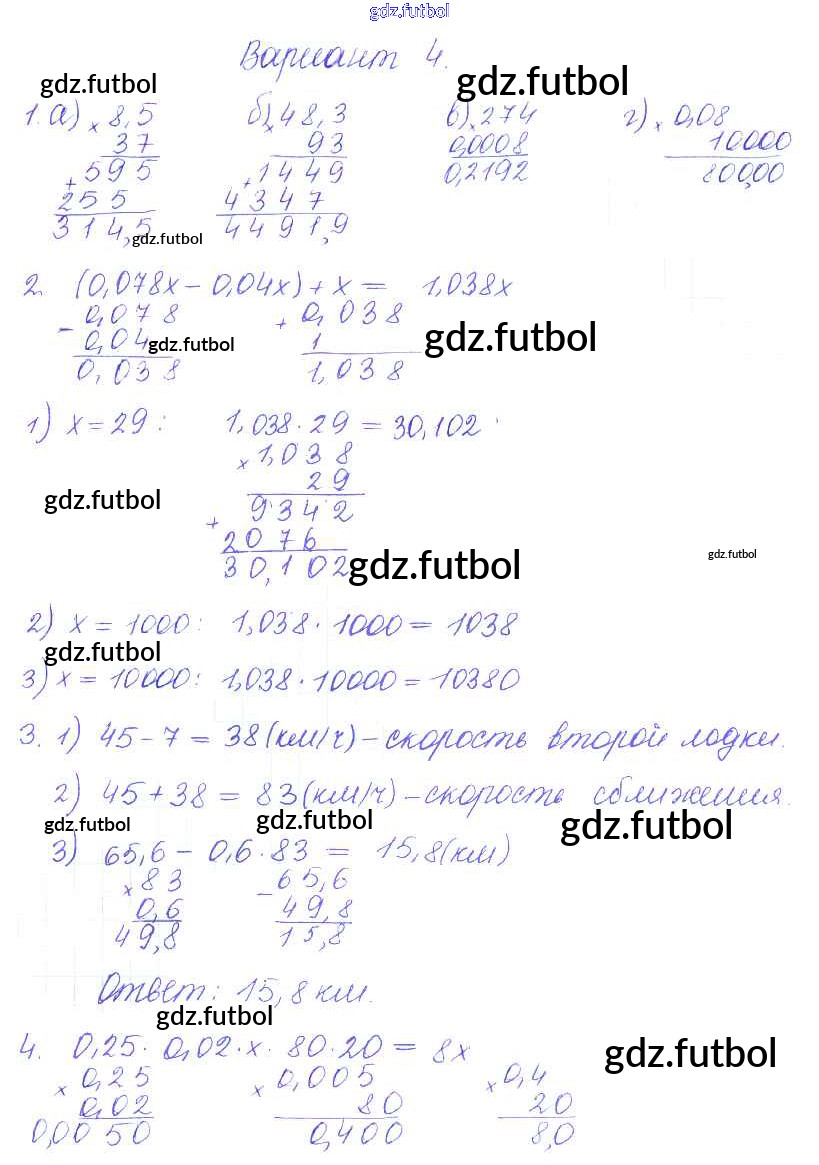 gdz.futbol
Вариант 4.
gdz.futbol gdz.futbol
1. а) × 8,5 б) × 48,3 в) × 274 г) × 0,08
37 93 0,0008 10000
+ 595 + 1449 0,2192 800,00
255 4347
314,5 4491,9
gdz.futbol
2. (0,078x - 0,04x) + x = 1,038x
- 0,078 + 0,038
0,04 1
gdz.futbol gdz.futbol
0,038 1,038
1) x = 29 : 1,038 · 29 = 30,102
× 1,038
29
gdz.futbol
9342
+
2076
30,102
gdz.futbol gdz.futbol
2) x = 1000: 1,038 · 1000 = 1038
gdz.futbol
3) x = 10000: 1,038 · 10000 = 10380
3. 1) 45 - 7 = 38 (км/ч) - скорость второй лодки.
2) 45 + 38 = 83 (км/ч) - скорость сближения.
gdz.futbol gdz.futbol gdz.futbol
3) 65,6 - 0,6 · 83 = 15,8 (км)
× 83 - 65,6
0,6 49,8
49,8 15,8
Ответ: 15,8 км.
gdz.futbol
4. 0,25 · 0,02 · x · 80 · 20 = 8x
gdz.futbol
× 0,25 × 0,005 × 0,4
0,02 80 20
0,0050 0,400 8,0